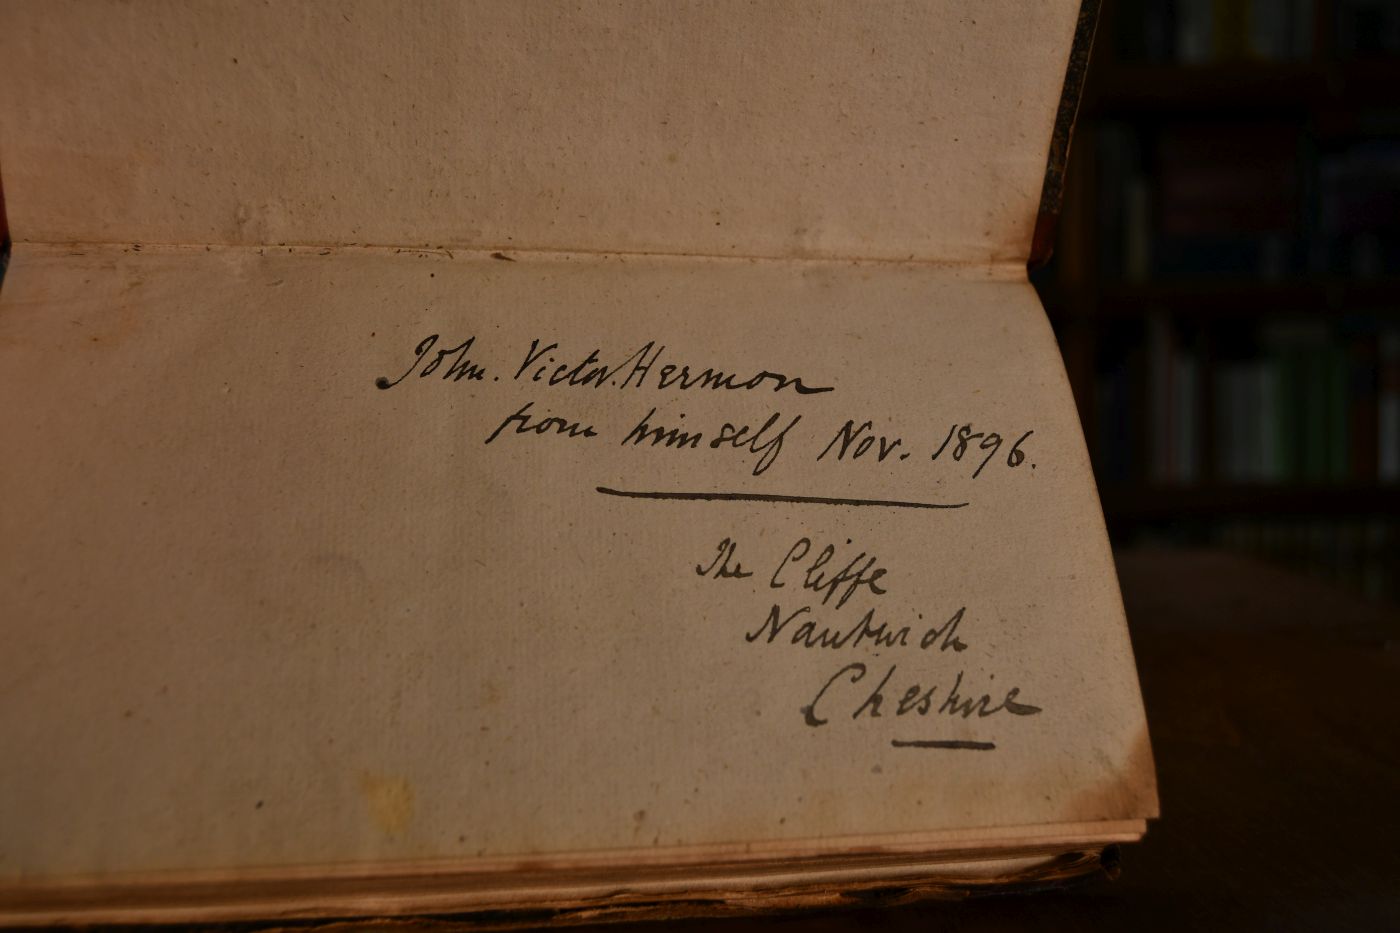 John. Victor. Hermon
from himself Nov. 1896.
The Cliffe
Nantwich
Cheshire